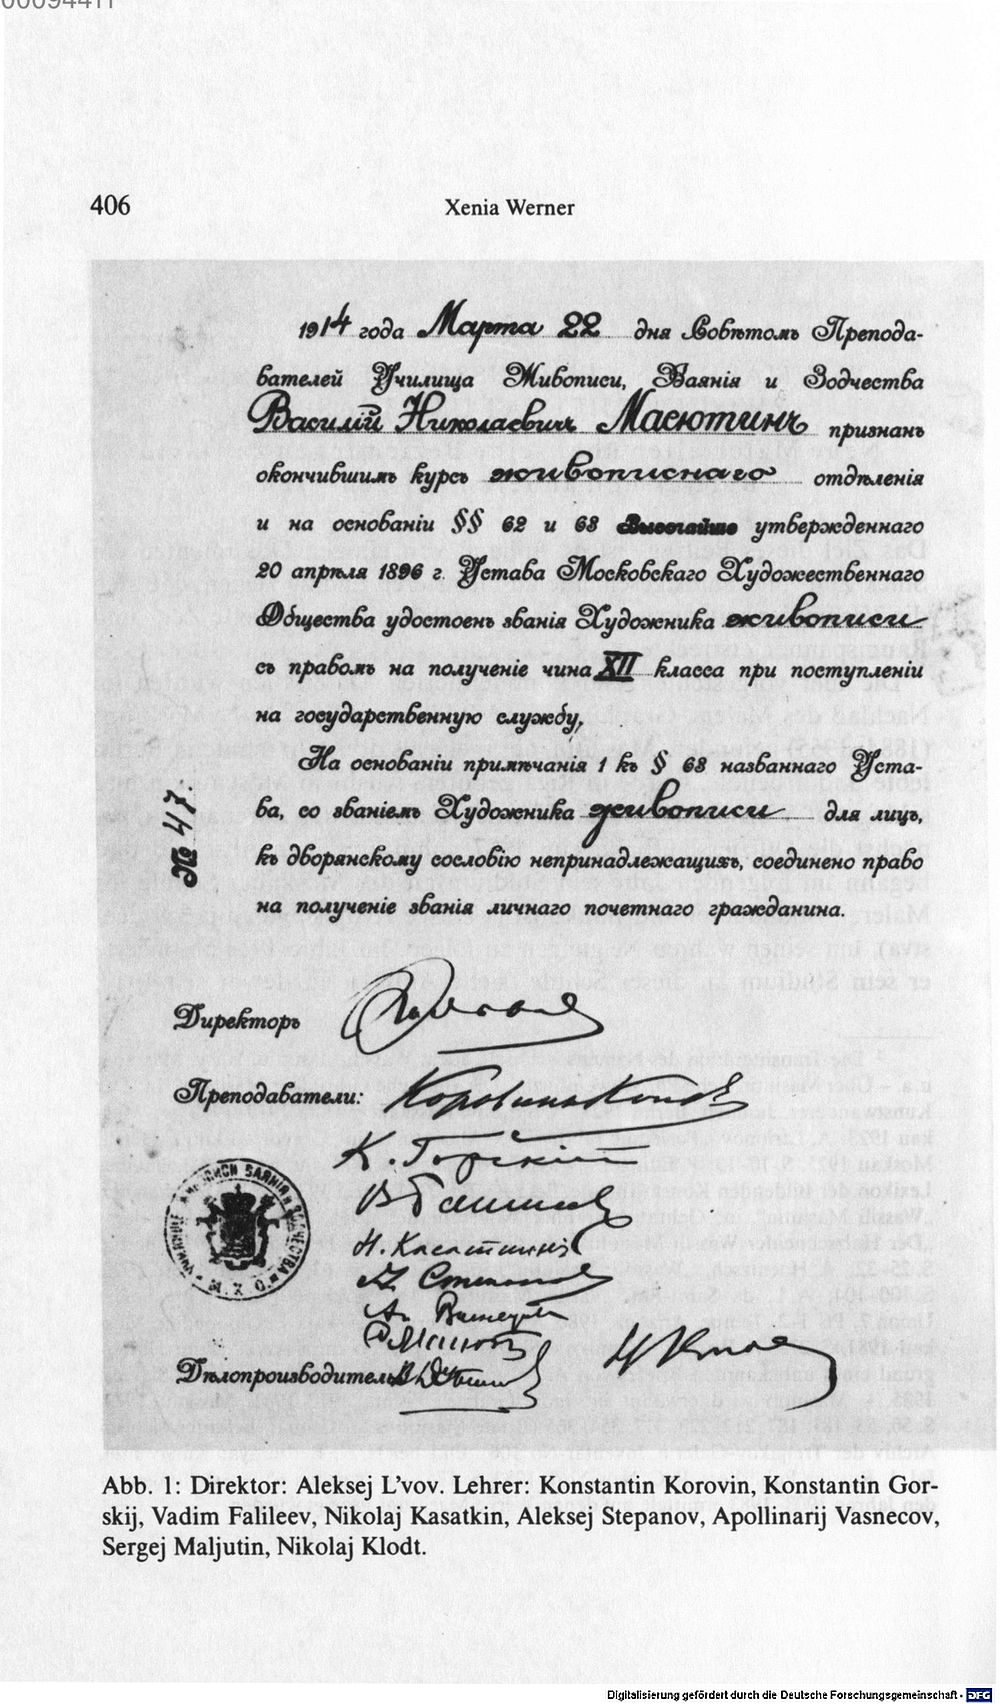 00094411
406
Xenia Werner
1914 года Марта 22 дня Совѣтомъ Препода-
вателей Училища Живописи, Ваянія и Зодчества
Василій Николаевичъ Масютинъ признанъ
окончившимъ курсъ живописнаго отдѣленія
и на основаніи §§ 62 и 63 Высочайше утвержденнаго
20 апрѣля 1896 г. Устава Московскаго Художественнаго
Общества удостоенъ званія Художника живописи
съ правомъ на полученіе чина XII класса при поступленіи
на государственную службу,
На основаніи примѣчанія 1 къ § 63 названнаго Уста-
ва, со званіемъ Художника живописи для лицъ,
къ дворянскому сословію непринадлежащихъ, соединено право
на полученіе званія личнаго почетнаго гражданина.
№ 47.
Директоръ
Преподаватели: Коровинъ Конст
К. Горскій
Н. Касаткинъ
А Степановъ
Ап. Васнецовъ
Дѣлопроизводитель
Abb. 1: Direktor: Aleksej L’vov. Lehrer: Konstantin Korovin, Konstantin Gor-
skij, Vadim Falileev, Nikolaj Kasatkin, Aleksej Stepanov, Apollinarij Vasnecov,
Sergej Maljutin, Nikolaj Klodt.
Digitalisierung gefördert durch die Deutsche Forschungsgemeinschaft - DFG